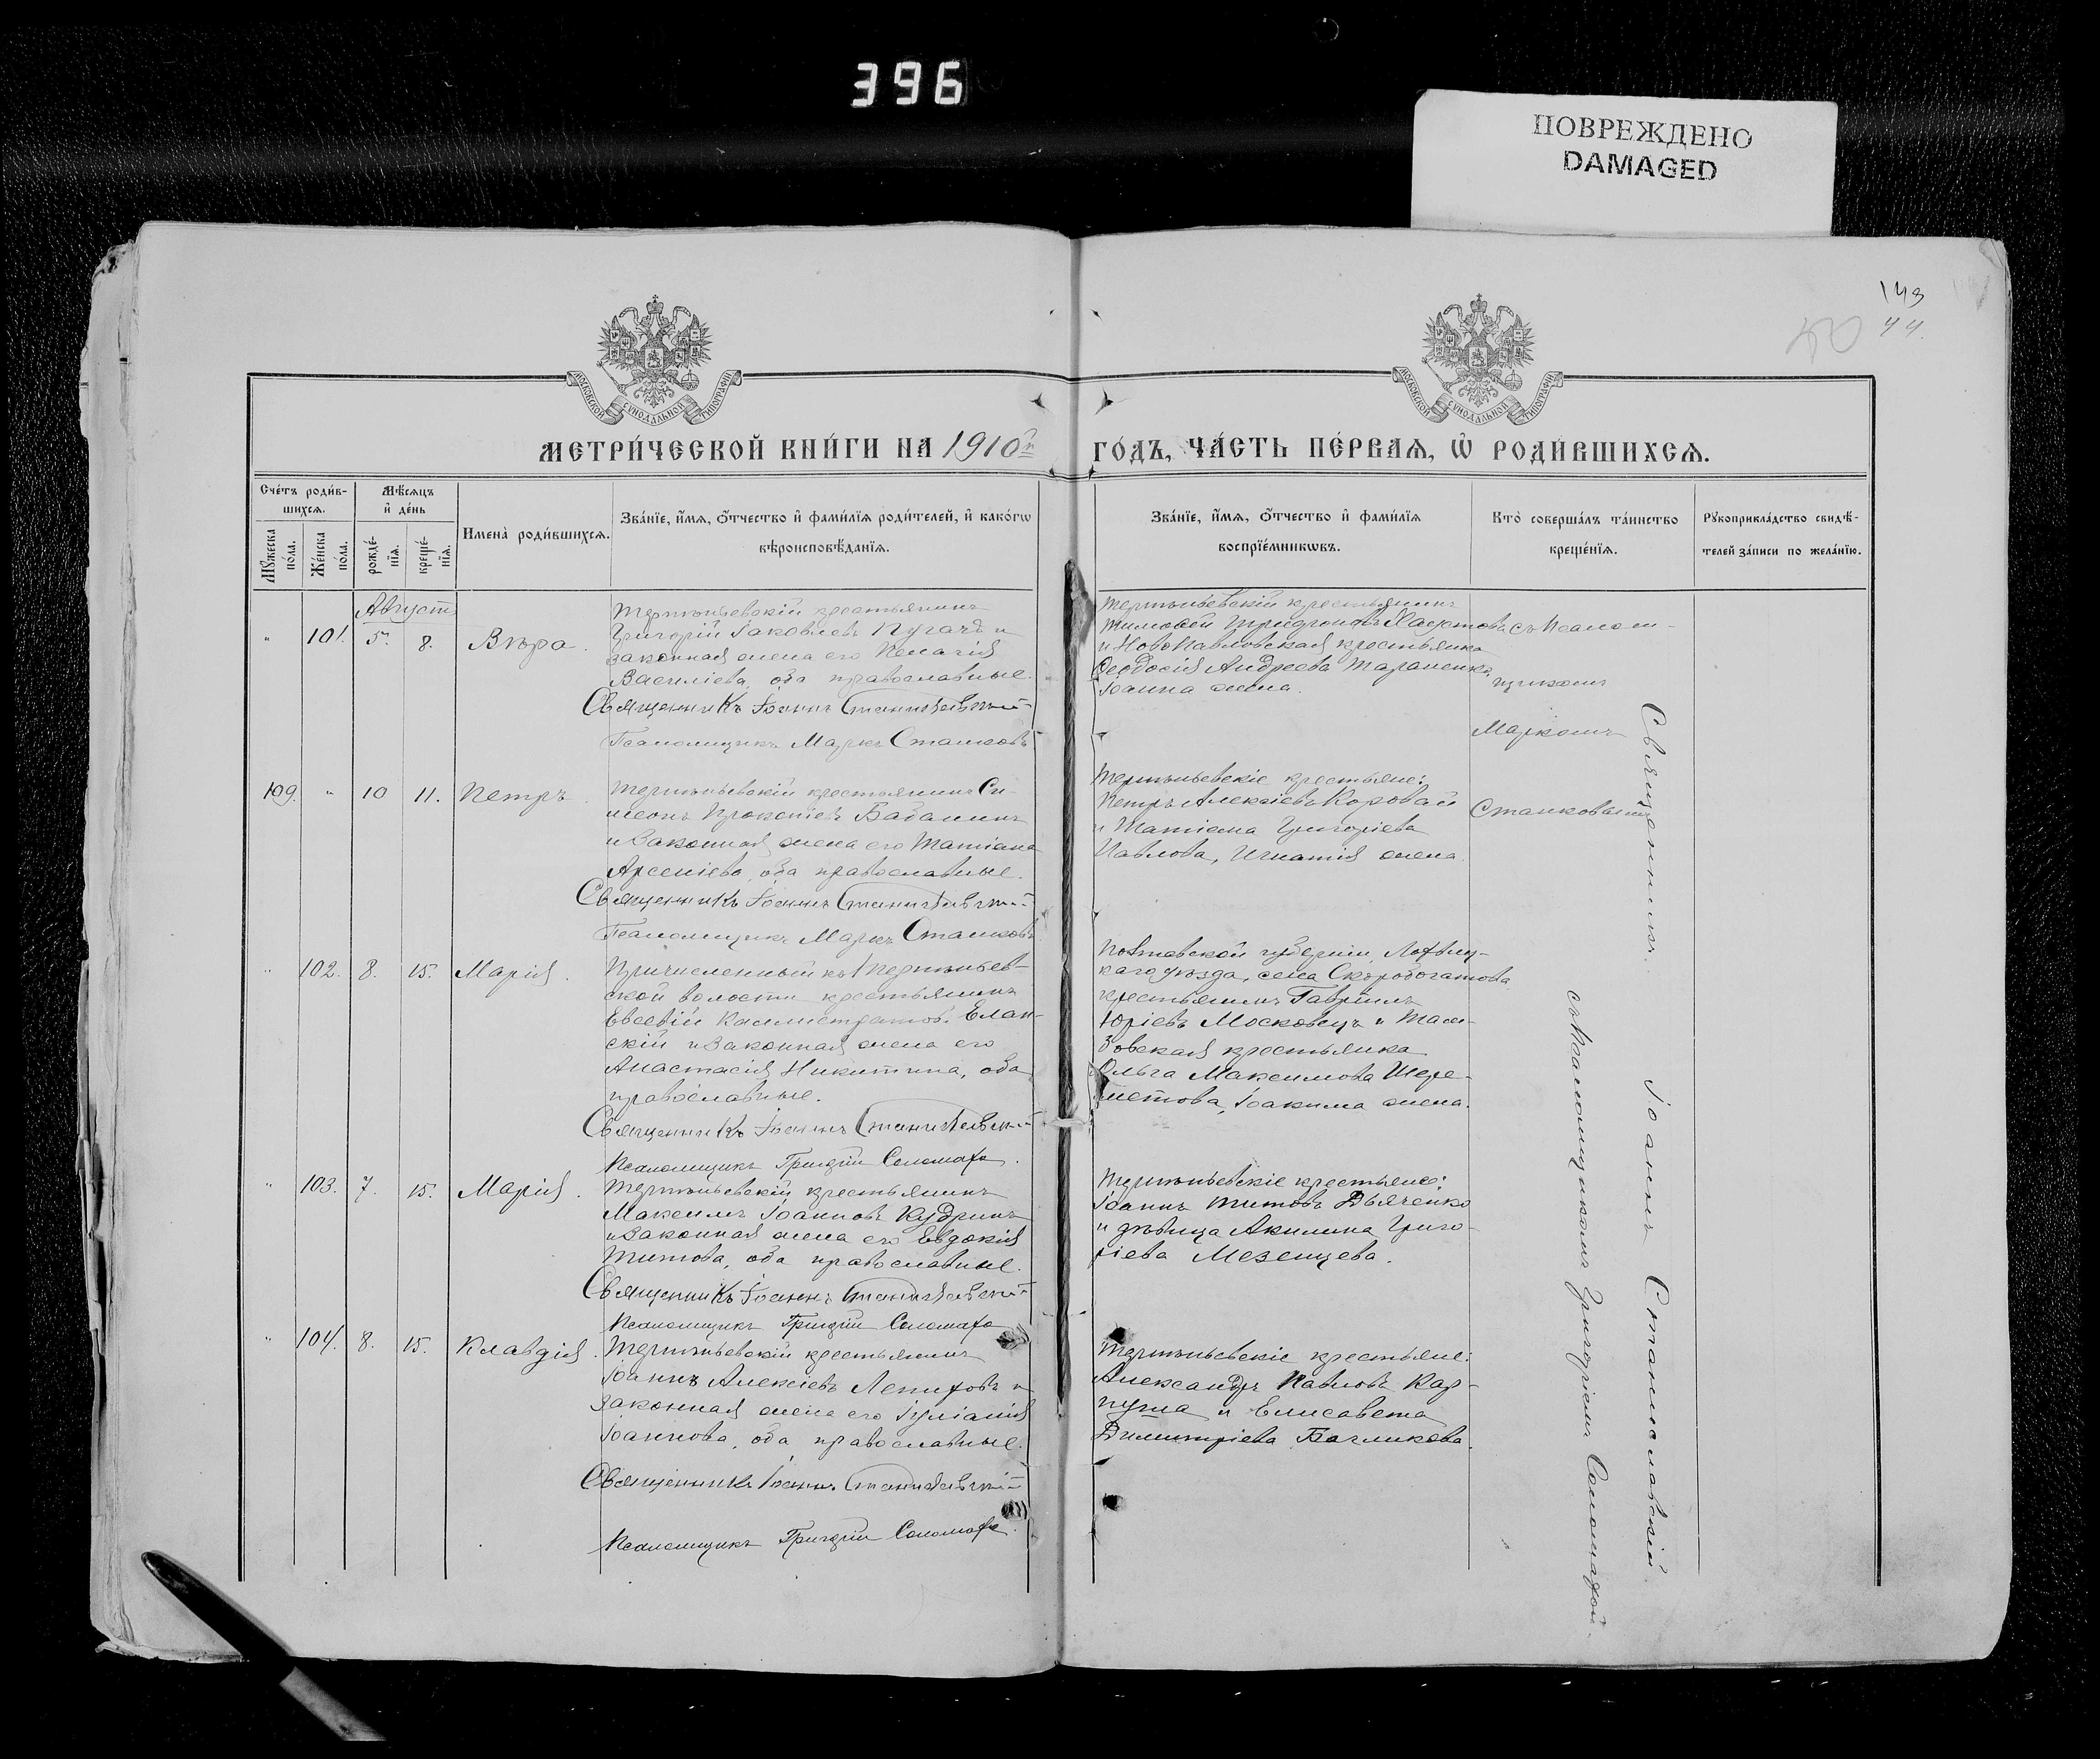 396
ПОВРЕЖДЕНО
DAMAGED
143
40 44.
МОСКОВСКОЙ СѴНОДАЛЬНОЙ ТИПОГРАФІИ
МОСКОВСКОЙ СѴНОДАЛЬНОЙ ТИПОГРАФІИ
МЕТРИ́ЧЕСКОЙ КНИ́ГИ НА 1910й
ГО́ДЪ, ЧА́СТЬ ПЕ́РВАѦ, Ѡ РОДИ́ВШИХСѦ.
Сче́тъ роди́в-
шихсѧ.
Мꙋжеска
по́ла.
Же́нска
по́ла.
Мѣ́сѧцъ
и҆ де́нь
рожде́-
нїѧ.
креще́-
нїѧ.
Имена̀ роди́вшихсѧ.
Зва́нїе, и҆́мѧ, ѻ҆́тчество и҆ фами́лїѧ роди́телей, и҆ како́гѡ
вѣроисповѣ́данїѧ.
Зва́нїе, и҆́мѧ, ѻ҆́тчество и҆ фами́лїѧ
воспрїе́мникѡвъ.
Кто̀ соверша́лъ та́инство
креще́нїѧ.
Рꙋкоприкла́дство свидѣ́-
телей за́писи по жела́нїю.
Августъ
" 101. 5. 8. Вѣра.
Терпѣньевскій крестьянинъ
Григорій Іаковлевъ Пугачъ и
законная жена его Пелагія
Василіева, оба православные.
Священникъ Іоаннъ Станиславскій
Псаломщикъ Маркъ Станковъ
Терпѣньевскій крестьянинъ
Тимофей Трифоновъ Хаустовъ
и Новопавловская крестьянка
Ѳеодосія Андреева Тараненко,
Іоанна жена.
съ Псалом-
щикомъ
Маркомъ
Станковымъ
109. " 10 11. Петръ.
Терпѣньевскій крестьянинъ Си-
меонъ Прокопіевъ Бабанинъ
и законная жена его Татіана
Арсеніева, оба православные.
Священникъ Іоаннъ Станиславскій
Псаломщикъ Маркъ Станковъ
Терпѣньевскіе крестьяне:
Петръ Алексіевъ Коровай
и Татіана Григоріева
Павлова, Игнатія жена.
" 102. 8. 15. Марія.
Причисленный къ Терпѣньев-
ской волости крестьянинъ
Евсевій Каллистратовъ Елан-
скій и законная жена его
Анастасія Никитина, оба
православные.
Священникъ Іоаннъ Станиславскій
Псаломщикъ Григорій Соломаха.
Полтавской губерніи, Лохвиц-
каго уѣзда, села Скоробогатова
крестьянинъ Гавріилъ
Юріевъ Московецъ и
крестьянка
Ольга Максимова Шере-
метова, Іоакима жена.
" 103. 7. 15. Марія.
Терпѣньевскій крестьянинъ
Максимъ Іоанновъ Кудринъ
и законная жена его Евдокія
Титова, оба православные.
Священникъ Іоаннъ Станиславскій
Псаломщикъ Григорій Соломаха
Терпѣньевскіе крестьяне:
Іоаннъ Титовъ Дьяченко
и дѣвица Акилина Григо-
ріева Мезенцева.
" 104. 8. 15. Клавдія.
Терпѣньевскій крестьянинъ
Іоаннъ Алексіевъ Лепиховъ и
законная жена его Іуліанія
Іоаннова, оба православные.
Священникъ Іоаннъ Станиславскій
Псаломщикъ Григорій Соломаха.
Терпѣньевскіе крестьяне:
Александръ Павловъ Кар-
пуша и Елисавета
Димитріева Багликова.
Священникъ Іоаннъ Станиславскій
съ Псаломщикомъ Григоріемъ Соломахой.